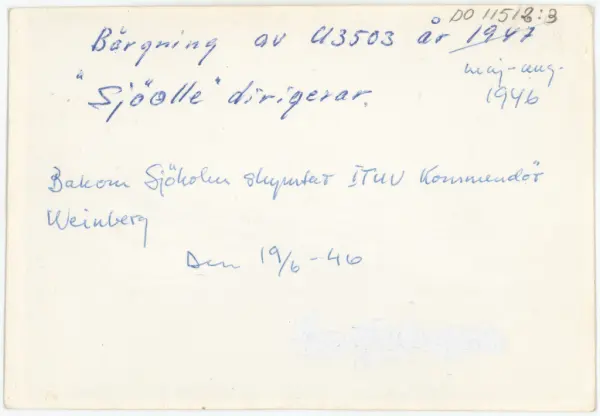 DO 11518:3
Bärgning av U3503 år 1947
maj-aug.
1946
"Sjöolle" dirigerar.
Bakom Sjöholm skymtar ITUV Kommendör
Weinberg
Den 19/6-46